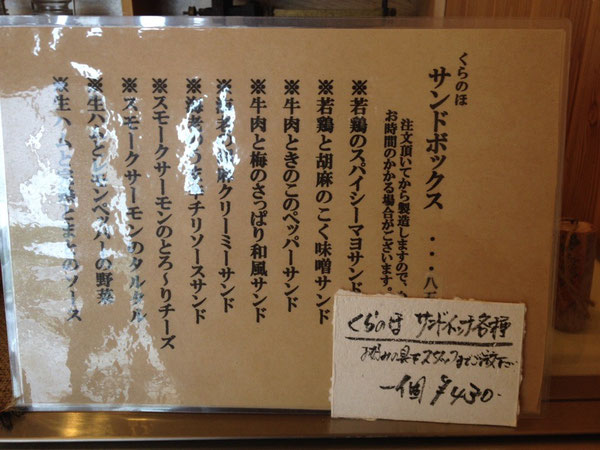 くらのほ
サンドボックス ・・・八五
注文頂いてから製造しますので、
お時間のかかる場合がございます。
※若鶏のスパイシーマヨサンド
※若鶏と胡麻のこく味噌サンド
※牛肉ときのこのペッパーサンド
※牛肉と梅のさっぱり和風サンド
※海老の クリーミーサンド
※海老 チリソースサンド
※スモークサーモンのとろ～りチーズ
※スモークサーモンのタルタル
※生ハムとレモンペッパーの野菜
※生ハムと のソース
くらのほ サンドイッチ各種
一個 ¥430-